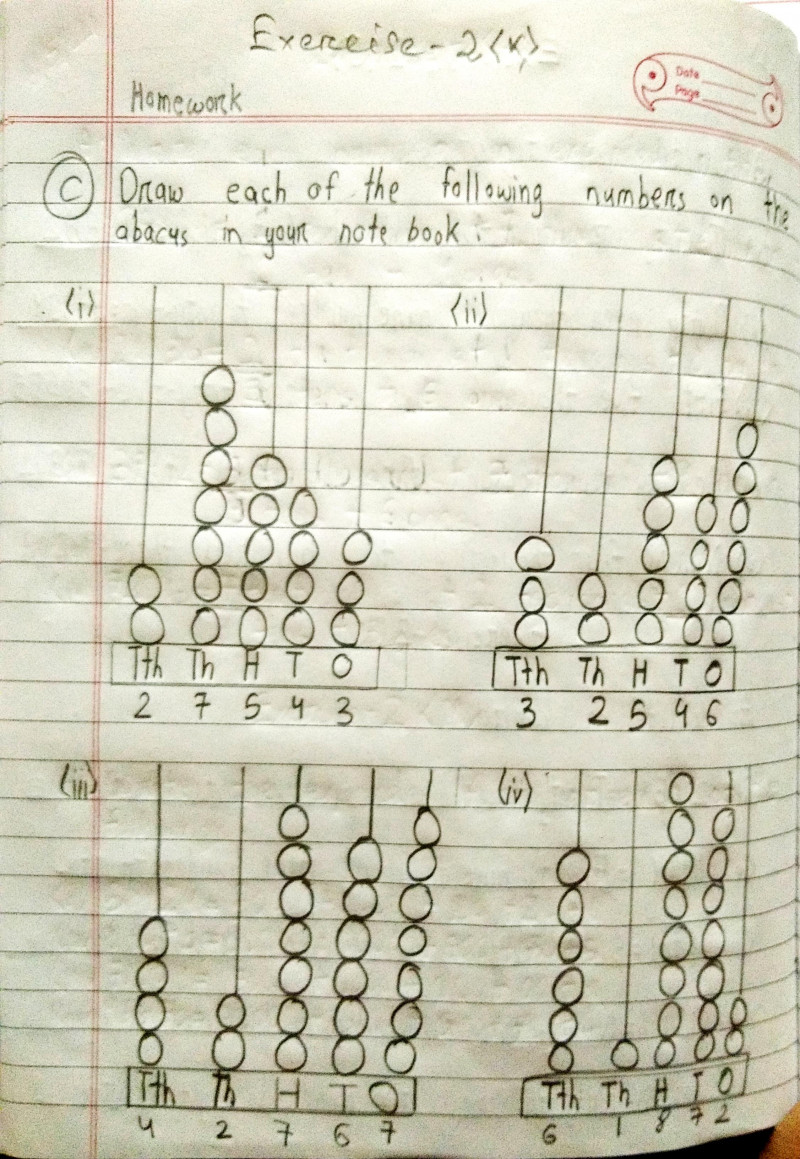 Exercise - 2 <K>
Date
Page
Homework
C Draw each of the following numbers on the
abacus in your note book.
<i> <ii>
Tth Th H T O Tth Th H T O
2 7 5 4 3 3 2 5 4 6
<iii> <iv>
Tth Th H T O Tth Th H T O
4 2 7 6 7 6 1 8 7 2